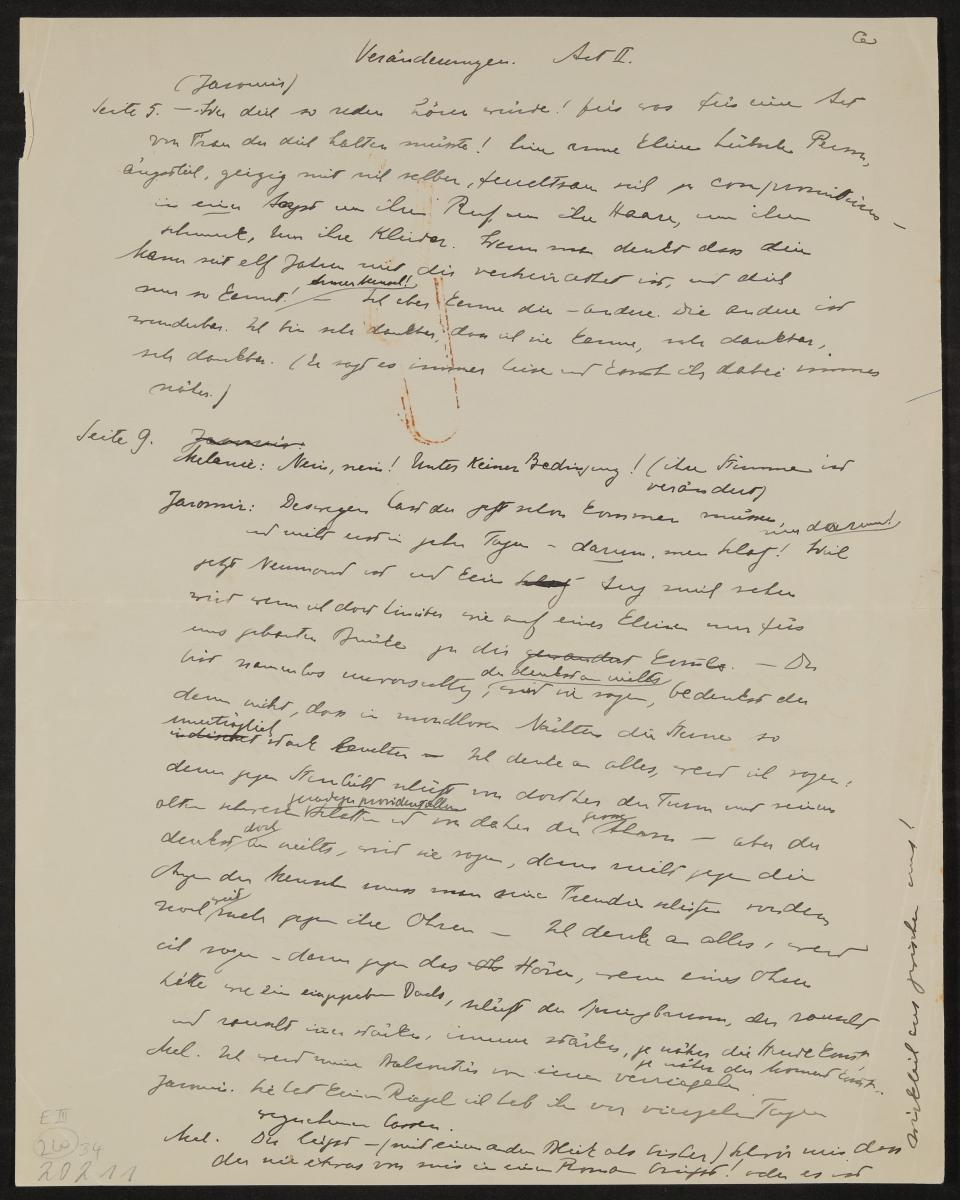 Veränderungen. Act II.
(Jaromir)
Seite 5. — Wer dich so reden hören würde! für was für eine Art
von Frau der dich halten müsste! Eine arme kleine hübsche Person,
ängstlich, geizig mit sich selber, sich zu compromittieren —
in einer Angst um ihren Ruf, um ihre Haare, um ihren
Schmuck, um ihre Kleider. Wenn man denkt dass dein
Mann seit elf Jahren mit dir verheirathet ist, und dich
nur so kennt! armer Mensch! — Ich aber kenne die — andere. Die andere ist
wunderbar. Ich bin sehr dankbar, dass ich sie kenne, sehr dankbar,
sehr dankbar. (Er sagt es immer leise und kommt ihr dabei immer
näher.)
Seite 9. Jaromir:
Melanie: Nein, nein! Unter keiner Bedingung! (ihre Stimme ist
verändert)
Jaromir: Deswegen hast du jetzt schon kommen müssen,
nur darum!
und nicht erst in zehn Tagen — darum, mein Schatz! Weil
jetzt Neumond ist und kein Aug mich sehen
wird wenn ich dort hinüber wie auf einer kleinen nur für
uns gebauten Brücke zu dir komme. — Du
bist namenlos unvorsichtig, du denkst an nichts, wirst sie sagen, bedenkst du
denn nicht, dass in mondlosen Nächten die Sterne so
unerträglich
stark leuchten — Ich denke an alles, werd ich sagen,
denn gegen Sternlicht schützt von dorther der Turm und seinen
geradezu providentiellen grosse
alten Schatten ist von daher der Ahorn — aber du
denkst doch an nichts, wird sie sagen, denn nicht gegen die
Augen der Mensch muss man seine Freundin schützen sondern
noch viel mehr gegen ihre Ohren — Ich denke an alles, werd
ich sagen — denn gegen das Hören, wenn einer Ohren
hätte wie ein Dachs, schützt der Springbrunn, der rauscht
und rauscht immer stärker, immer stärker, je näher die Stunde kommt
je näher der Moment kommt..
Mel. Ich werd meine Balcontür von innen verriegeln
Jaromir. Sie hat keinen Riegel ich hab ihn vor vierzehn Tagen
wegnehmen lassen.
Mel. Du lügst — (mit einem andern Blick als bisher) Schwör mir, dass
du nie etwas von mir in einen Roman bringst! oder es ist
wirklich aus zwischen uns!
E III
210 34
20211